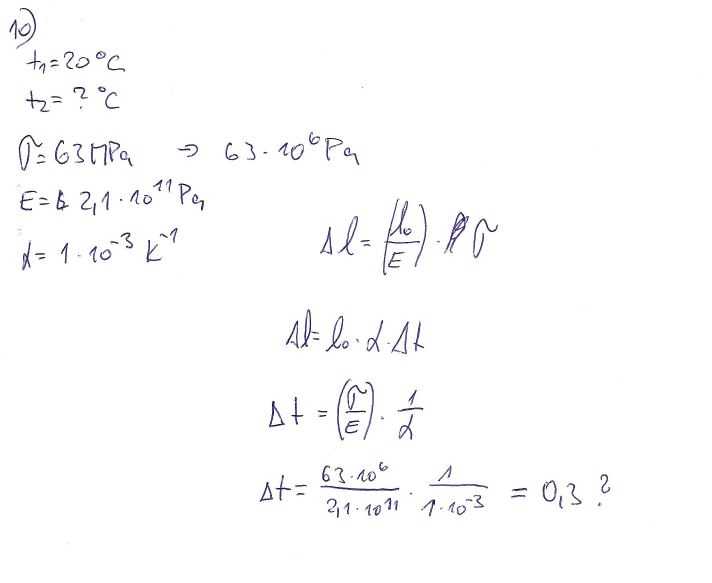 10)
t₁=20°C
t₂= ? °C
σ=63MPa ⇒ 63·10⁶Pa
E= 2,1·10¹¹Pa
α= 1·10⁻³ K⁻¹
Δl=(l₀/E)·σ
Δl=l₀·α·Δt
Δt=(σ/E)·1/α
Δt= 63·10⁶/2,1·10¹¹ · 1/1·10⁻³ = 0,3 ?